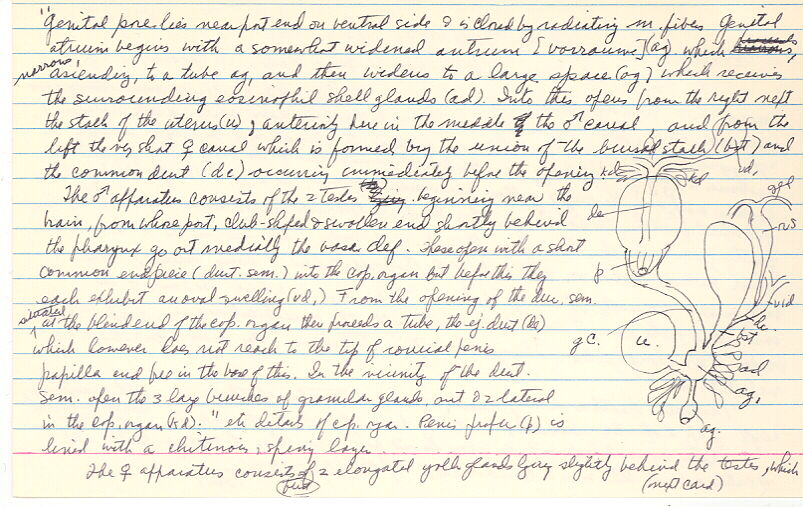 "Genital pore lies near post end on ventral side & is closed by radiating m. fibers Genital
atrium begins with a somewhat widened antrum [vorraum] (ag, which
narrows, ascending, to a tube ag, and then widens to a large space (ag) which receives
the surrounding eosinophil shell glands (ad). Into this opens from the right next
the stalk of the uterus (u), anteriorly here in the middle of the ♂ canal, and from the
left the very short ♀ canal which is formed by the union of the bursal stalk (bst) and
the common duct (dc) occurring immediately before the opening.
The ♂ apparatus consists of the 2 testes beginning near the
brain, from whose post, club-shaped & swollen end shortly behind
the pharynx go out medially the vasa def. These open with a short
common endpiece (duct. sem.) into the cop. organ but before this they
each exhibit an oval swelling (vd,) From the opening of the duc. sem.
situated
at the blind end of the cop. organ then proceeds a tube, the ej. duct (de)
which however does not reach to the tip of conical penis
papilla end free in the base of this. In the vicinity of the duct.
sem. open the 3 large bunches of granular glands, ant & 2 lateral
in the cop. organ (kd)." etc details of cop. organ. Penis proper (p) is
lined with a chitinous, spiny layer.
The ♀ apparatus consists of 2 elongated yolk glands lying slightly behind the testes, which
(next card)
kd
kd
vd,
ggl
de
rs
p
vid
gc.
u.
bst
ad
ag,
ag.